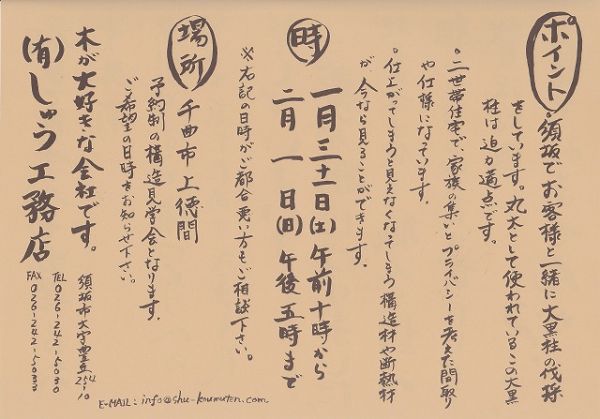 ポイント
・須坂でお客様と一緒に大黒柱の伐採
をしています。丸太として使われているこの大黒
柱は迫力満点です。
・二世帯住宅で、家族の集いとプライバシーを考えた間取り
や仕様になっています。
・仕上がってしまうと見えなくなってしまう構造材や断熱材
が今なら見ることができます。
時
一月三十一日(土)午前十時から
二月一日(日)午後五時まで
※右記の日時がご都合悪い方もご相談下さい。
場所
千曲市上徳間
予約制の構造見学会となります。
ご希望の日時をお知らせ下さい。
木が大好きな会社です。
(有)しゅう工務店
須坂市大字豊丘254-10
TEL 026-242-5030
FAX 026-242-5033
E-MAIL:info@shu-koumuten.com